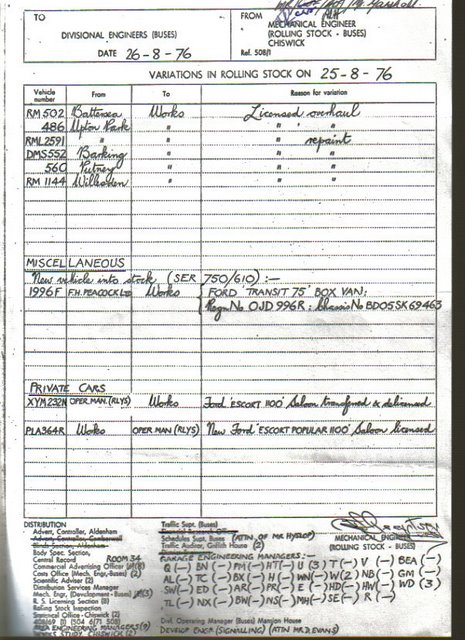 TO
FROM
DIVISIONAL ENGINEERS (BUSES)
MECHANICAL ENGINEER
(ROLLING STOCK - BUSES)
CHISWICK
DATE 26-8-76
Ref. 508/1
VARIATIONS IN ROLLING STOCK ON 25-8-76
Vehicle number From To Reason for variation
RM 502 Battersea Works Licensed overhaul
486 Upton Park " " "
RML 2591 " " " repaint
DMS 552 Barking " " "
560 Putney " " "
RM 1144 Willesden " " "
MISCELLANEOUS
New vehicle into stock (SER 750/610) :-
1996 F F.H. PEACOCK LTD Works { FORD 'TRANSIT 75' BOX VAN:
Regn No OJD 996R : Chassis No BD05SK69463
PRIVATE CARS
XYM 232N OPER. MAN. (RLYS) Works Ford 'ESCORT 1100' Saloon transferred & delicensed
PLA 364R Works OPER MAN (RLYS) New Ford 'ESCORT POPULAR 1100' Saloon licensed
DISTRIBUTION
Advert. Controller, Aldenham
Advert. Controller, Camberwell
Body Spec. Section,
Central Record ROOM 34
Commercial Advertising Officer
Costs Office (Mech. Engr.-Buses) (2)
Scientific Adviser (2)
Distribution Services Manager
Mech. Engr. (Development-Buses)
R. S. Licensing Section (8)
Rolling Stock Inspection
Statistical Office - Chiswick (2)
AREA ENGINEERING MANAGERS (9)
WORKS STUDY, CHISWICK (2)
Traffic Supt. (Buses)
Schedules Supt. (Buses) (ATTN. OF MR HYSLOP)
Traffic Auditor, Griffith House (2)
MECHANICAL ENGINEER
(ROLLING STOCK - BUSES)
GARAGE ENGINEERING MANAGERS :-
Q (-) BN (-) PM (-) HT (-) U (3) T (-) V (-) BEA (-)
AL (-) TC (-) BX (-) H (-) WN (-) W (2) NB (-) GM (-)
SW (-) ED (-) AR (-) PR (-) E (-) HD (-) HW (-) WD (3)
TL (-) NX (-) BW (-) NS (-) MH (-) SE (-) R (-)
Divl. Operating Manager (Buses) Manjian House
DEVELOP ENGR (SIGNALLING) (ATTN MR D EVANS)